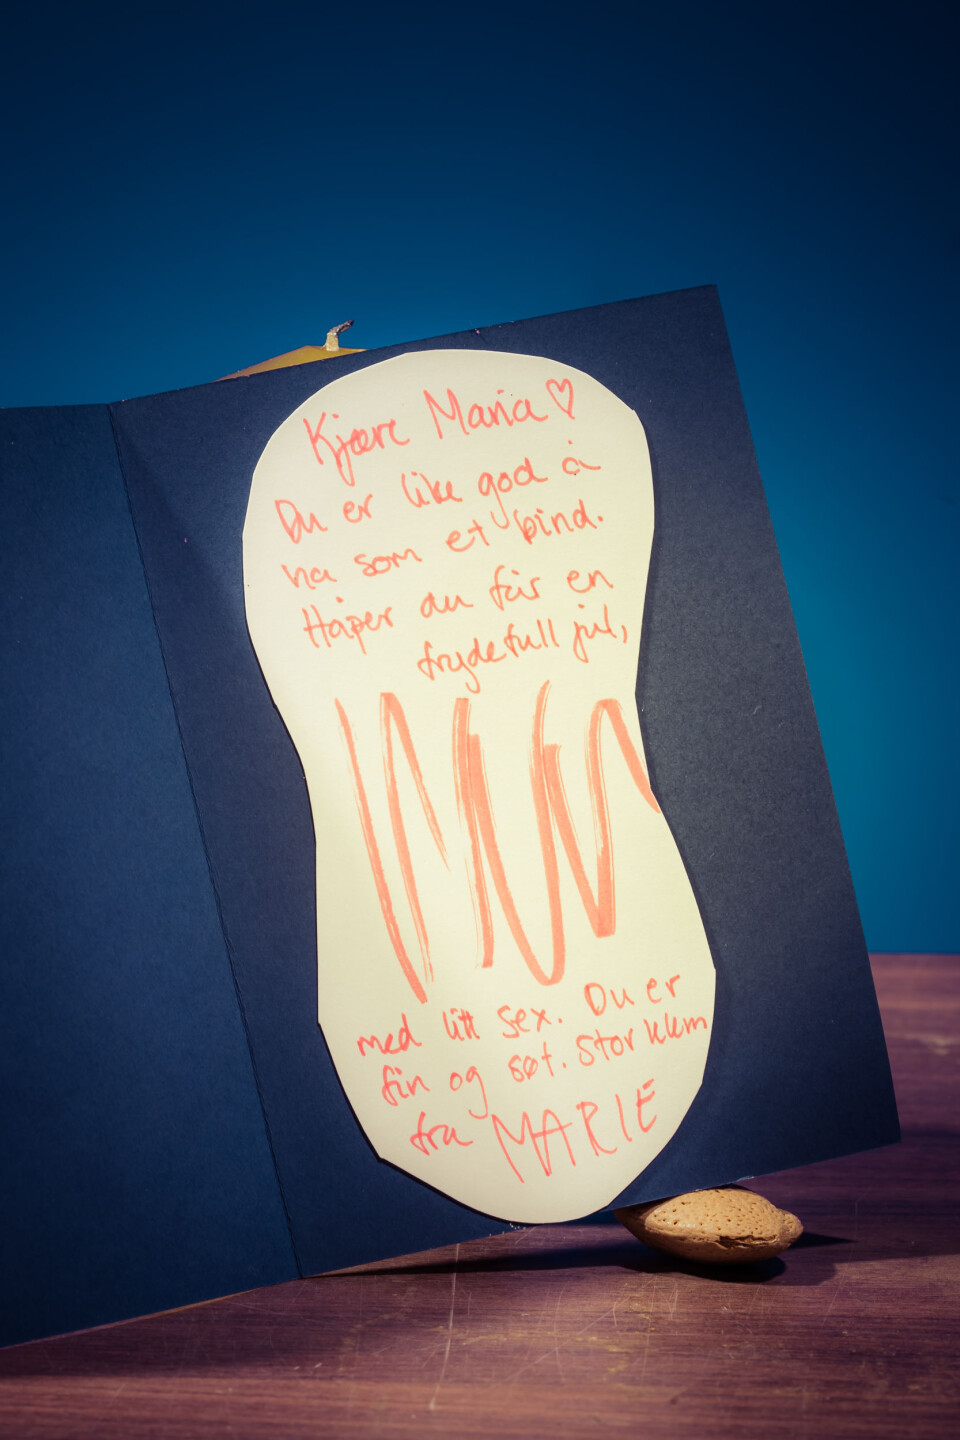 Kjære Maria ♡
Du er like god å
ha som et bind.
Håper du får en
frydefull jul,
med litt sex. Du er
fin og søt. Stor klem
fra MARIE